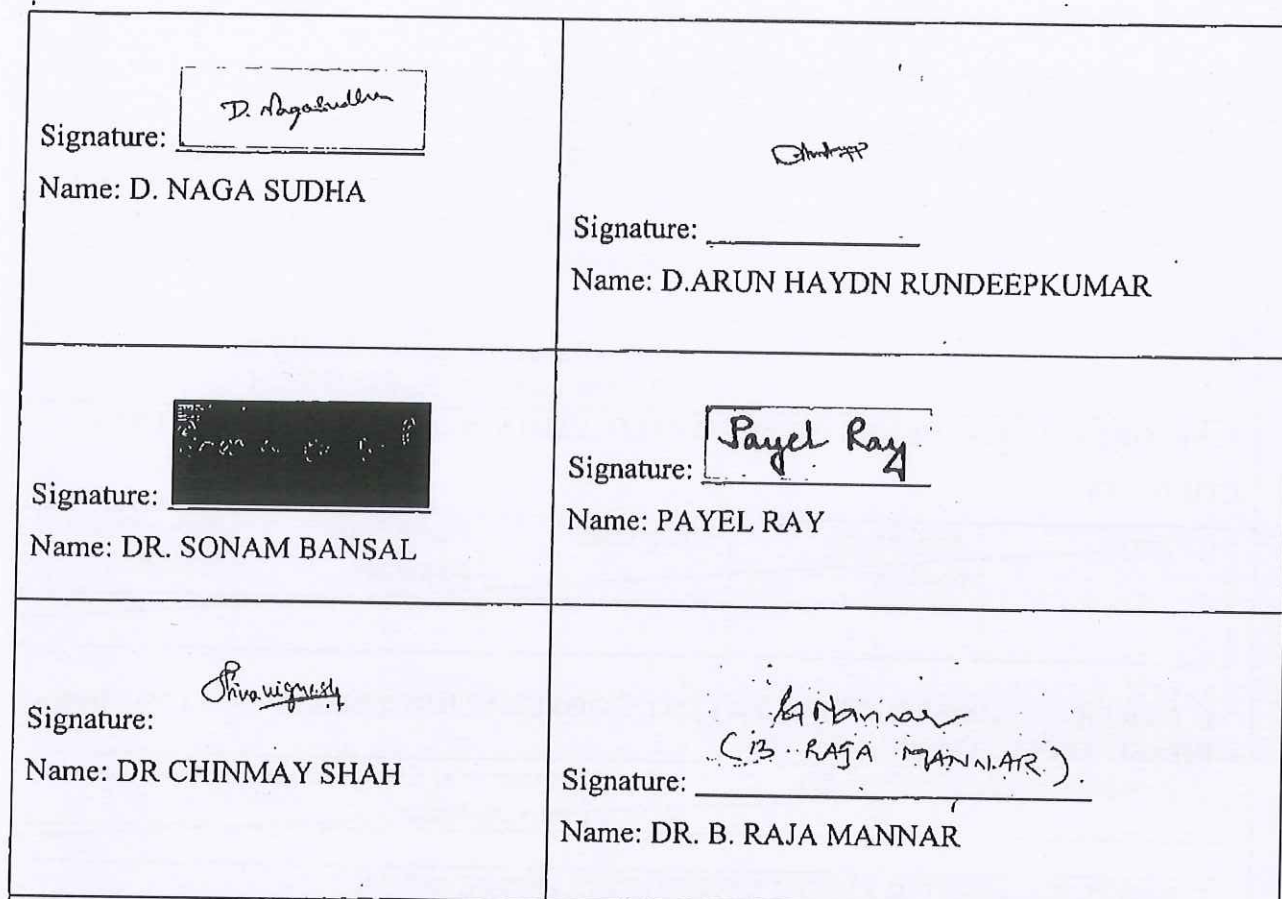 D. Nagasudha
Signature:
Name: D. NAGA SUDHA
Signature:
Name: D.ARUN HAYDN RUNDEEPKUMAR
Signature:
Name: DR. SONAM BANSAL
Payel Ray
Signature:
Name: PAYEL RAY
Shivavignesh
Signature:
Name: DR CHINMAY SHAH
(B. RAJA MANNAR)
Signature:
Name: DR. B. RAJA MANNAR